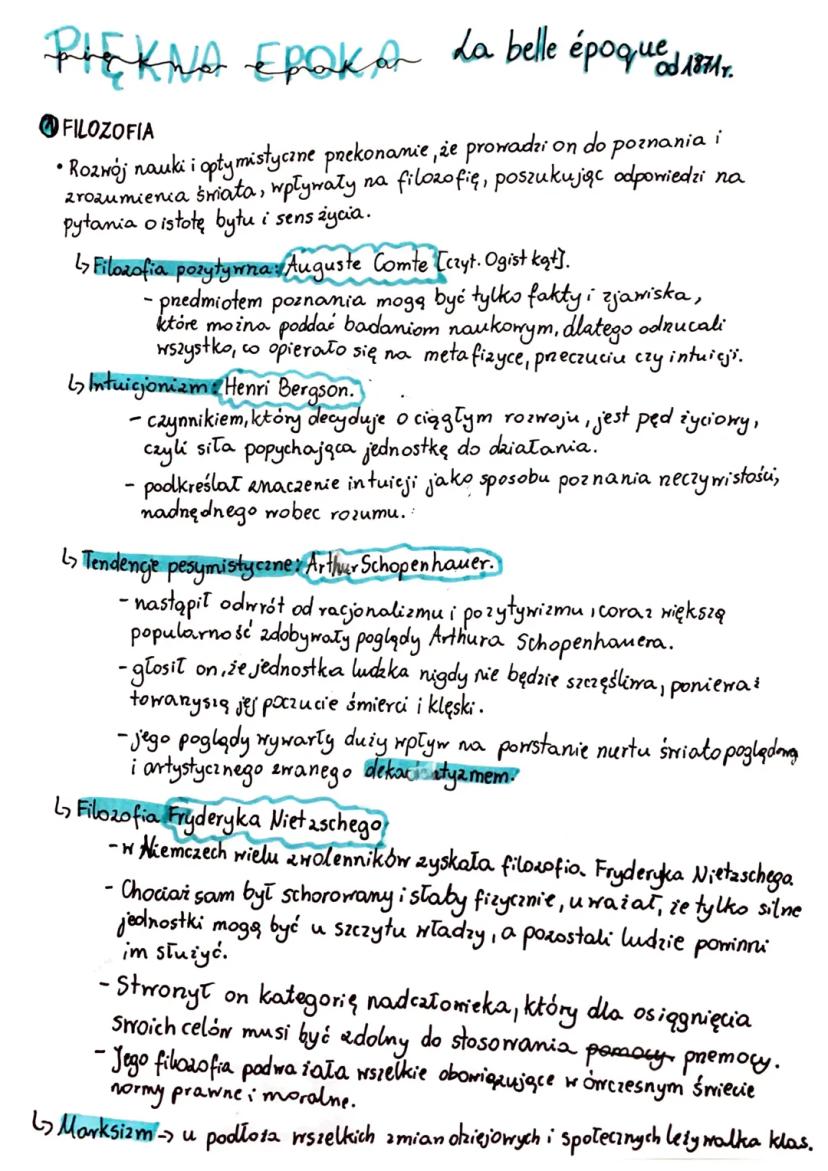 PIĘKNA EPOKA
piękna epoka
La belle époque
od 1871r.
1 FILOZOFIA
• Rozwój nauki i optymistyczne przekonanie, że prowadzi on do poznania i
zrozumienia świata, wpływały na filozofię, poszukując odpowiedzi na
pytania o istotę bytu i sens życia.
↳ Filozofia pozytywna: Auguste Comte [czyt. Ogist kąt].
- przedmiotem poznania mogą być tylko fakty i zjawiska,
które można poddać badaniom naukowym, dlatego odrzucali
wszystko, co opierało się na metafizyce, przeczuciu czy intuicji.
↳ Intuicjonizm: Henri Bergson.
- czynnikiem, który decyduje o ciągłym rozwoju, jest pęd życiowy,
czyli siła popychająca jednostkę do działania.
- podkreślał znaczenie intuicji jako sposobu poznania rzeczywistości,
nadrzędnego wobec rozumu.
↳ Tendencje pesymistyczne: Arthur Schopenhauer.
- nastąpił odwrót od racjonalizmu i pozytywizmu, coraz większą
popularność zdobywały poglądy Arthura Schopenhauera.
- głosił on, że jednostka ludzka nigdy nie będzie szczęśliwa, ponieważ
towarzyszą jej poczucie śmierci i klęski.
- jego poglądy wywarły duży wpływ na powstanie nurtu światopoglądową
i artystycznego zwanego dekadentyzmem.
↳ Filozofia Fryderyka Nietzschego
- w Niemczech wielu zwolenników zyskała filozofia Fryderyka Nietzschego
- Chociaż sam był schorowany i słaby fizycznie, uważał, że tylko silne
jednostki mogą być u szczytu władzy, a pozostali ludzie powinni
im służyć.
- Stworzył on kategorię nadczłowieka, który dla osiągnięcia
swoich celów musi być zdolny do stosowania pomocy przemocy.
- Jego filozofia podważała wszelkie obowiązujące w ówczesnym świecie
normy prawne i moralne.
↳ Marksizm → u podłoża wszelkich zmian dziejowych i społecznych leży walka klas.